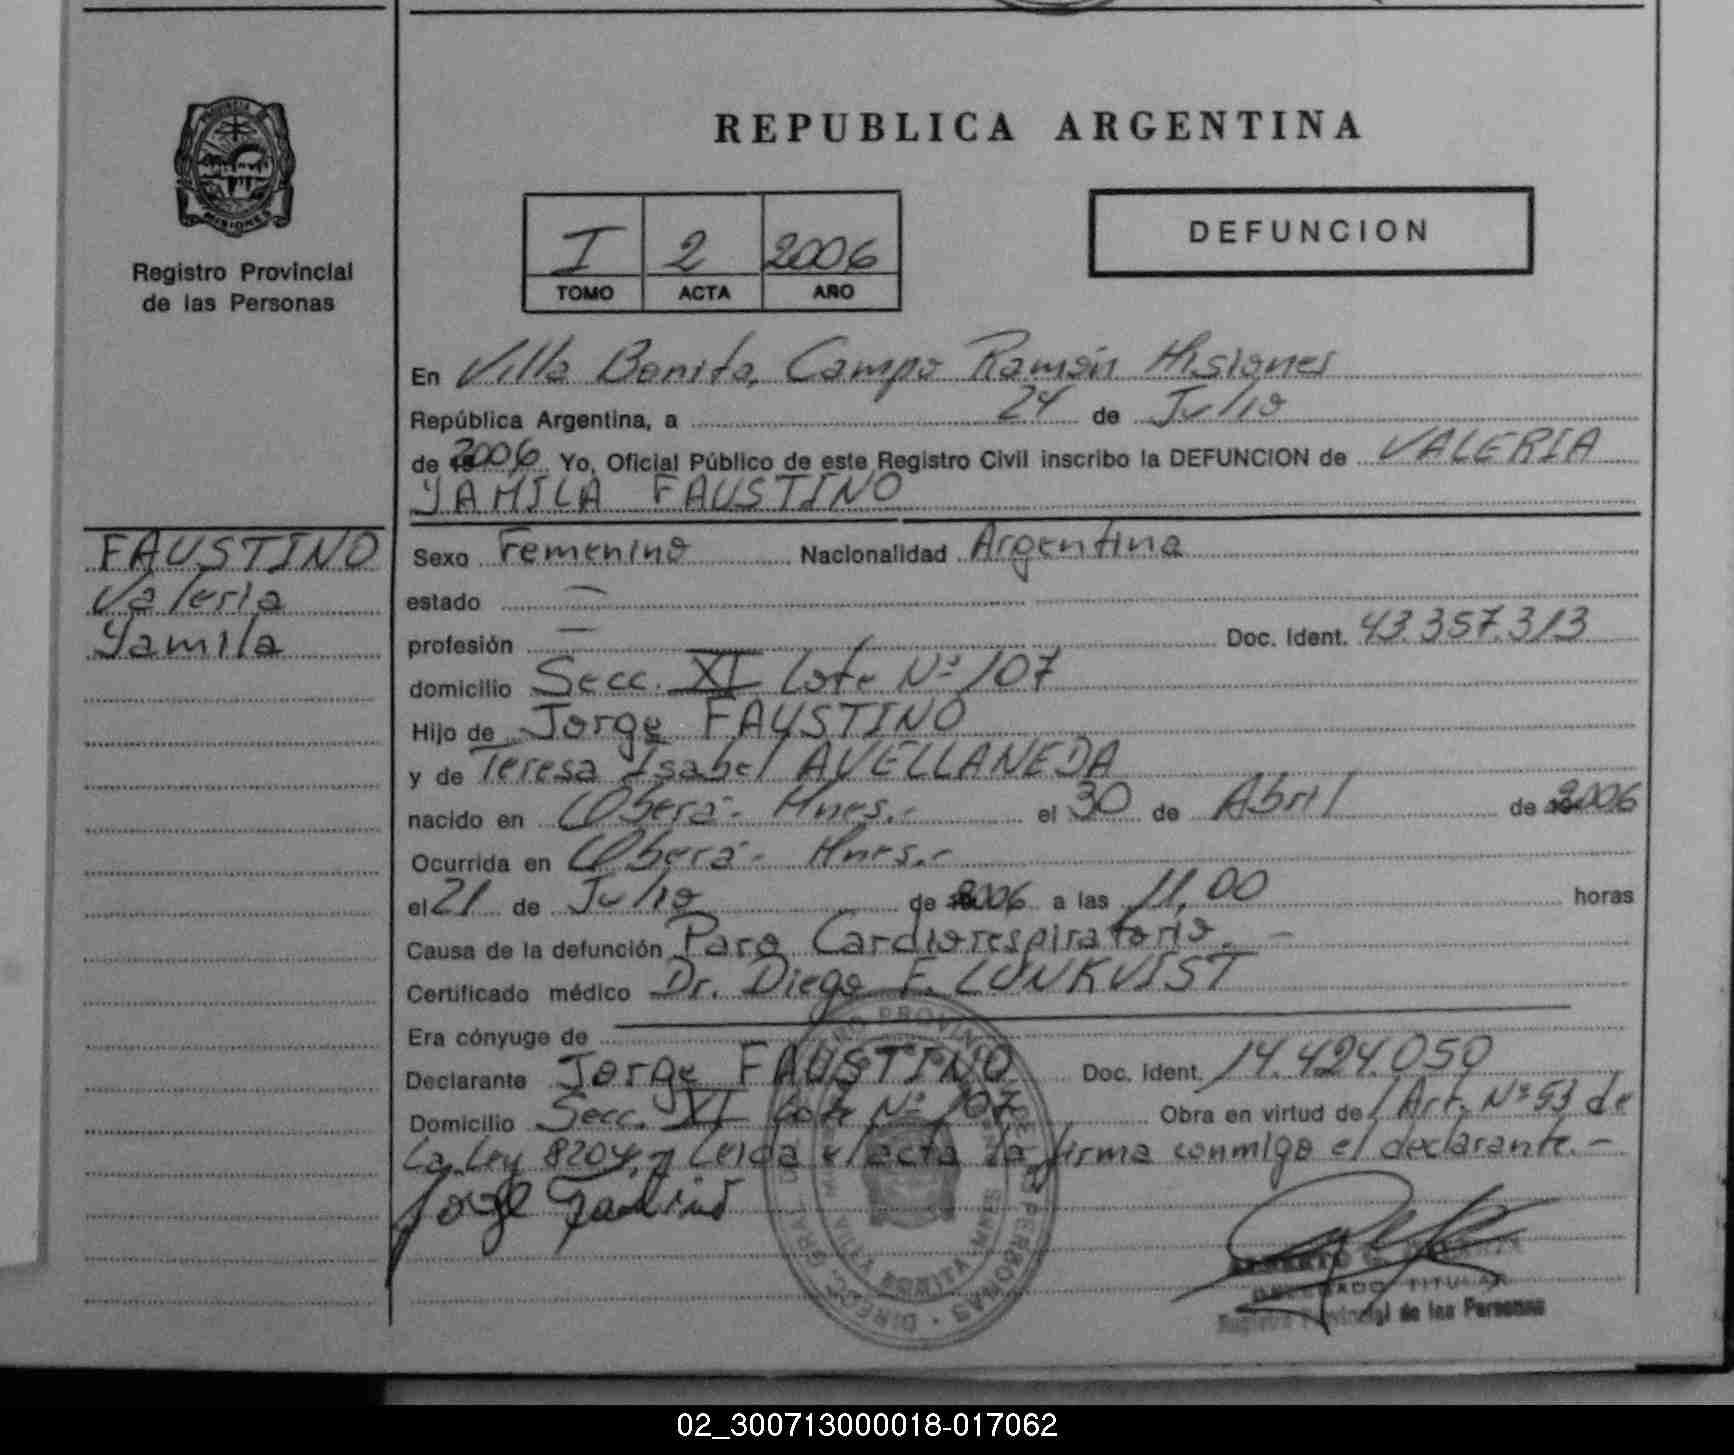 MISIONES
Registro Provincial
de las Personas
FAUSTINO
Valeria
Yamila
REPUBLICA ARGENTINA
I 2 2006
TOMO ACTA AÑO
DEFUNCION
En Villa Bonita, Campo Ramón Misiones
República Argentina, a 24 de Julio
de 2006 Yo, Oficial Público de este Registro Civil inscribo la DEFUNCION de VALERIA
YAMILA FAUSTINO
Sexo Femenino Nacionalidad Argentina
estado —
profesión — Doc. Ident. 43.357.313
domicilio Secc. XI Lote Nº 107
Hijo de Jorge FAUSTINO
y de Teresa Isabel AVELLANEDA
nacido en Oberá - Mnes.- el 30 de Abril de 2006
Ocurrida en Oberá - Mnes.-
el 21 de Julio de 2006 a las 11,00 horas
Causa de la defunción Paro Cardiorespiratorio. -
Certificado médico Dr. Diego F. LUNKVIST
Era cónyuge de
Declarante Jorge FAUSTINO Doc. Ident. 14.424.050
Domicilio Secc. XI Lote Nº 107 Obra en virtud de Art. Nº 53 de
La Ley 8204, y Leida el acta la firma conmigo el declarante.-
Jorge Faustino
DELEGADO TITULAR
Registro Provincial de las Personas
02_300713000018-017062